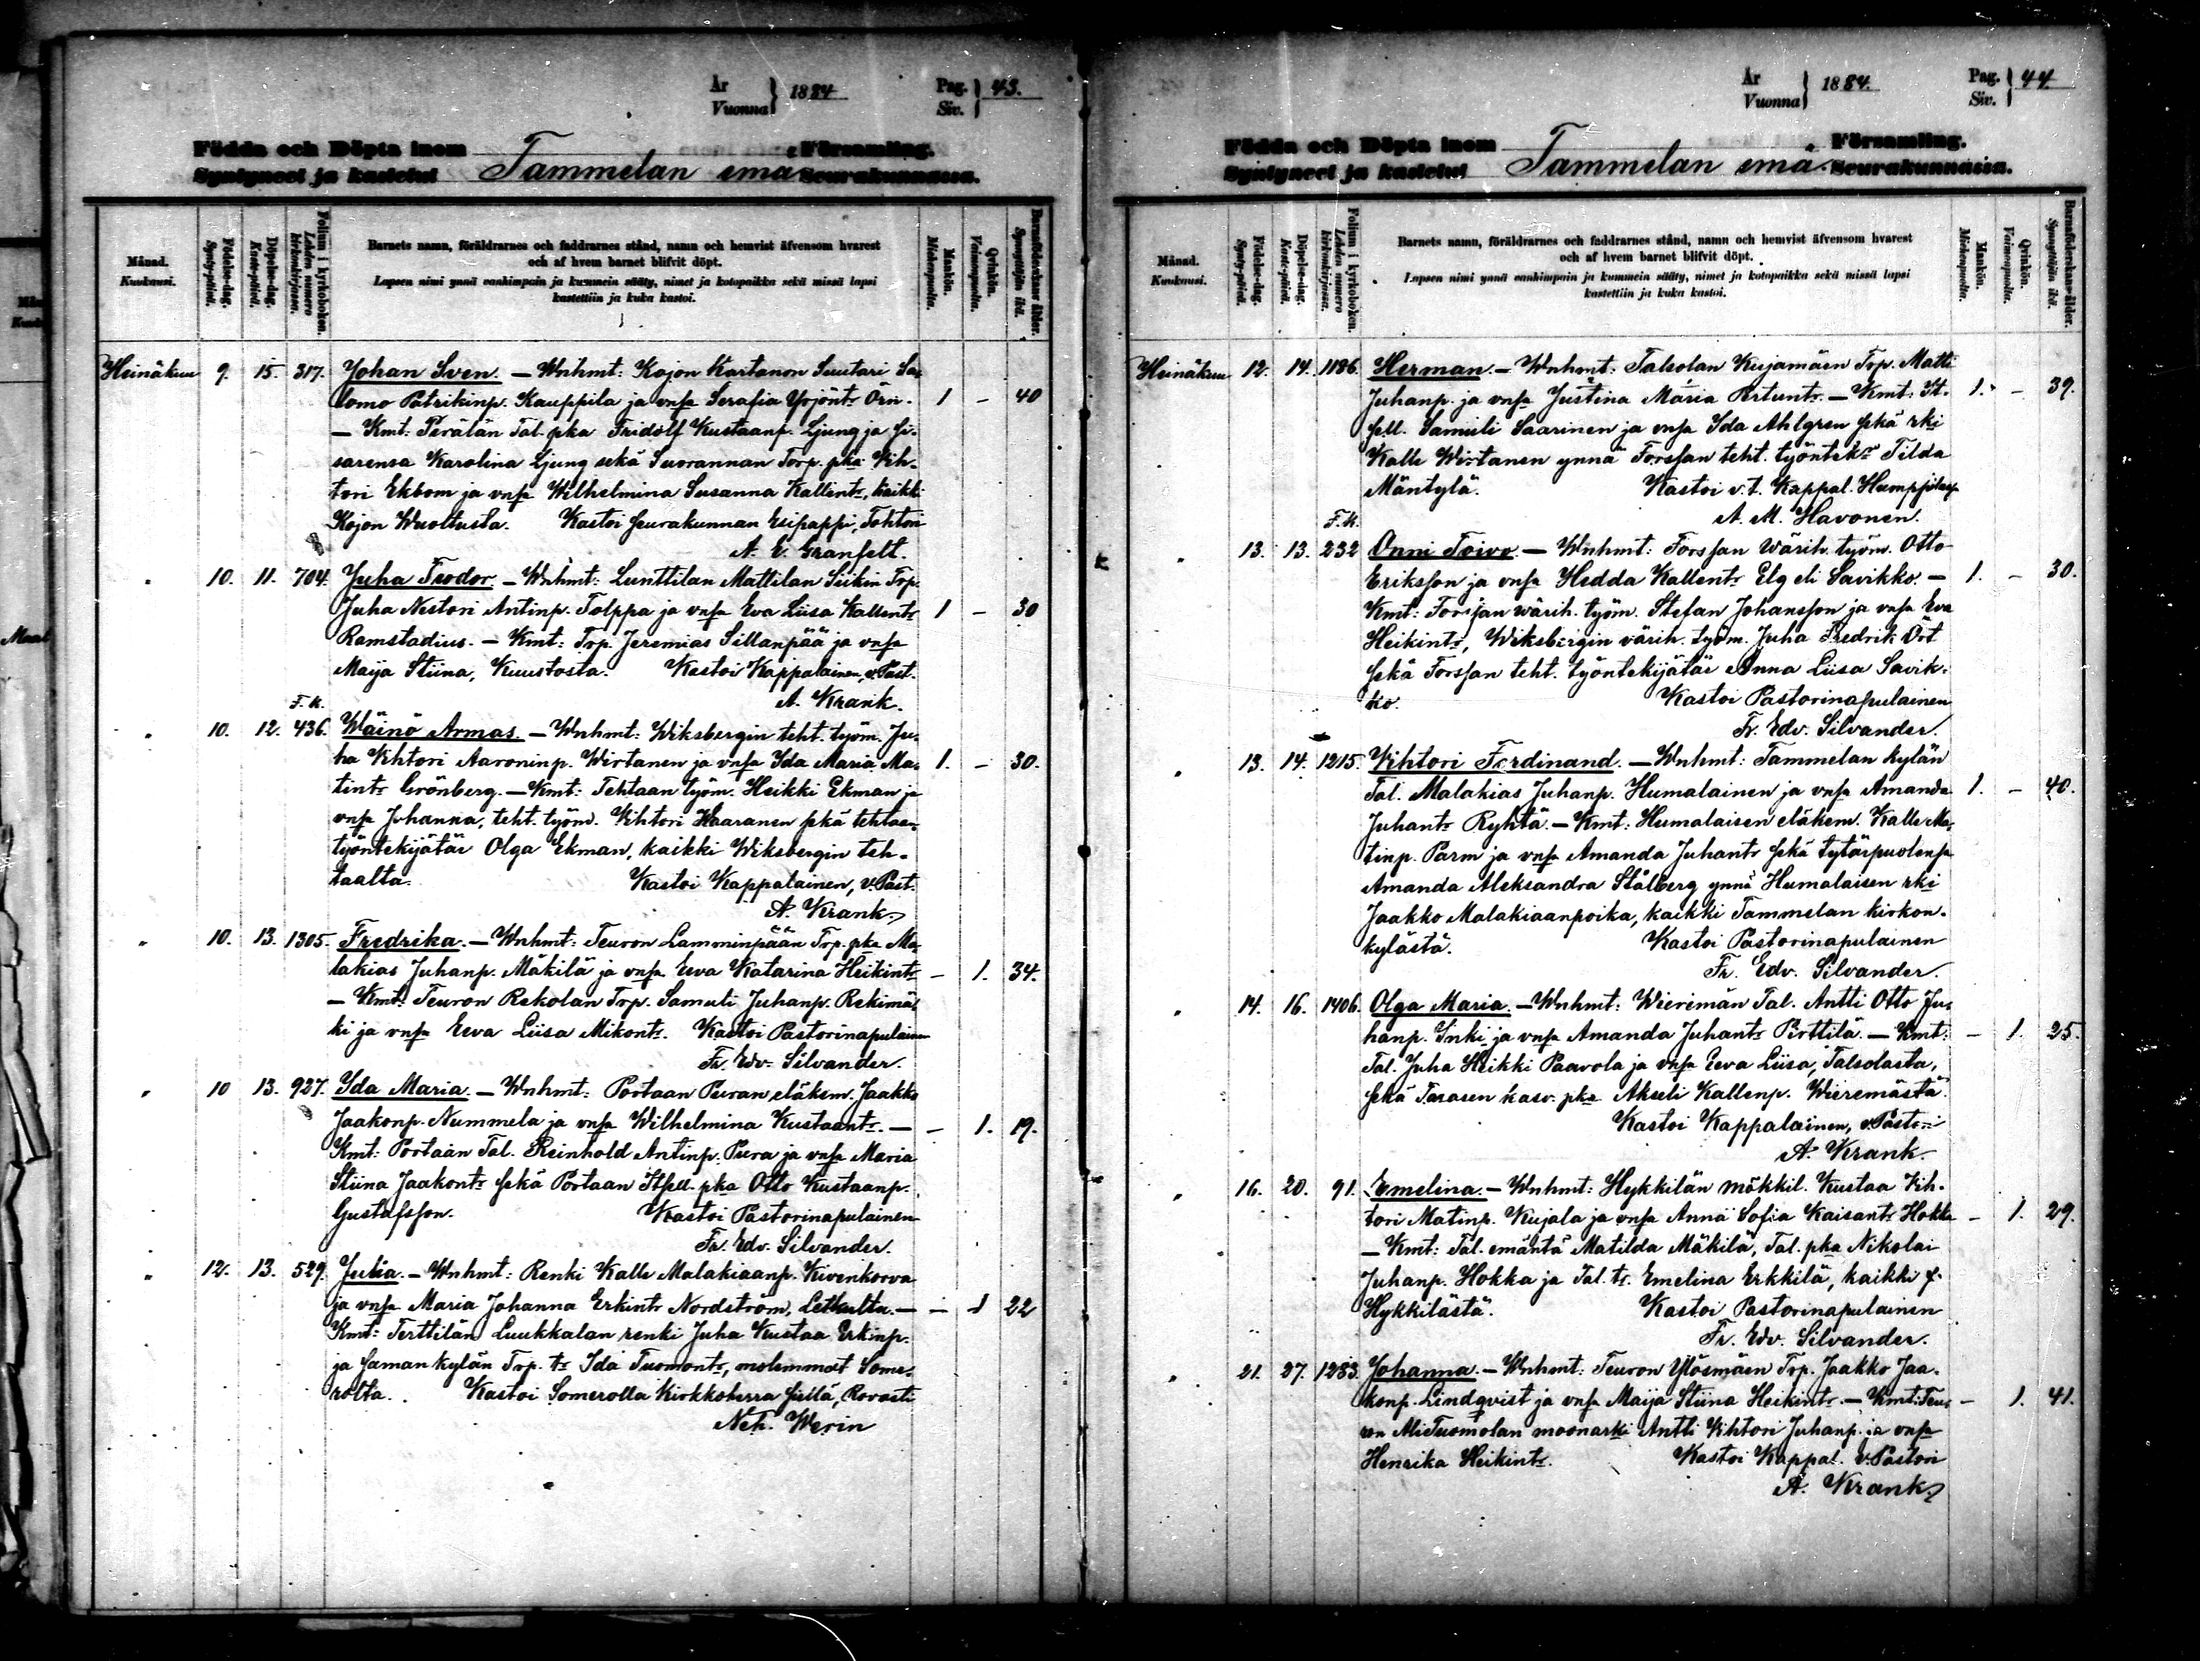 År
Vuonna } 1884
Pag.
Siv. } 43.
Födda och Döpta inom
Syntyneet ja kastetut Tammelan emä Församling.
Seurakunnassa.
Månad.
Kuukausi.
Födelse-dag.
Synty-päivä.
Döpelse-dag.
Kaste-päivä.
Folium i kyrkoboken.
Lehden numero kirkonkirjassa.
Barnets namn, föräldrarnes och faddrarnes stånd, namn och hemvist äfvensom hvarest
och af hvem barnet blifvit döpt.
Lapsen nimi ynnä vanhimpain ja kummein sääty, nimet ja kotopaikka sekä missä lapsi
kastettiin ja kuka kastoi.
Mankön.
Miehenpuolta.
Qvinkön.
Vaimonpuolta.
Barnaföderskans ålder.
Synnyttäjän ikä.
Heinäkuu 9. 15. 317. Johan Sven. — Wnhmt: Kojon Kartanon Suutari Sa-
lomo Patrikinp. Kauppila ja vnsa Serafia Yrjönt. Örn. 1 - 40
— Kmt: Perälän Tal. pka Fridolf Kustaanp. Ljung ja si-
sarensa Karolina Ljung sekä Suorannan Torp. pka Vih-
tori Ekbom ja vnsa Wilhelmina Susanna Kallentr, kaikki
Kojon Wuoltusta. Kastoi seurakunnan Esipappi, Tohtori
A. E. Granfelt.
" 10. 11. 704. Juha Teodor. — Wnhmt: Lunttilan Mattilan Siikin Trp.
Juha Nestori Antinp. Tolppa ja vnsa Eva Liisa Kallentr 1 - 30
Ramstadius. — Kmt: Trp. Jeremias Sillanpää ja vnsa
Maija Stiina, Kuustosta. Kastoi Kappalainen, v. Past.
A. Krank.
F. k.
" 10. 12. 436. Wäinö Armas. — Wnhmt: Wiksbergin teht. työm. Ju-
ha Vihtori Aaroninp. Wirtanen ja vnsa Ida Maria Ma- 1. - 30.
tintr Grönberg. — Kmt: Tehtaan työm. Heikki Ekman ja
vnsa Johanna, teht. työm. Vihtori Haaranen sekä tehtaan
työntekijätär Olga Ekman, kaikki Wiksbergin teh-
taalta. Kastoi Kappalainen, v. Past.
A. Krank.
" 10. 13. 1305. Fredrika. — Wnhmt: Teuron Lamminpään Trp. pka Ma-
lakias Juhanp. Mäkilä ja vnsa Eeva Katarina Heikintr - 1. 34.
— Kmt: Teuron Rekolan Trp. Samuli Juhanp. Rekimä-
ki ja vnsa Eeva Liisa Mikontr. Kastoi Pastorinapulainen
Fr. Edv. Silvander.
" 10 13. 927. Ida Maria. — Wnhmt: Portaan Puran eläkem. Jaakko
Jaakonp. Nummela ja vnsa Wilhelmina Kustaantr. — - 1. 19.
Kmt: Portaan Tal. Reinhold Antinp. Pura ja vnsa Maria
Stiina Jaakontr sekä Portaan Itsell. pka Otto Kustaanp.
Gustafsson. Kastoi Pastorinapulainen
Fr. Edv. Silvander.
" 12. 13. 529. Julia. — Wnhmt: Renki Kalle Malakiaanp. Kivenkorva
ja vnsa Maria Johanna Erkintr Nordström, Letkulta. — - 1 22
Kmt: Terttilän Luukkalan renki Juha Kustaa Erkinp.
ja saman kylän Trp. tr Ida Tuomontr, molemmat Some-
rolta. Kastoi Somerolla Kirkkoherra siellä, Rovasti
Neh. Werin
År
Vuonna } 1884.
Pag.
Siv. } 44.
Födda och Döpta inom
Syntyneet ja kastetut Tammelan emä. Församling.
Seurakunnassa.
Månad.
Kuukausi.
Födelse-dag.
Synty-päivä.
Döpelse-dag.
Kaste-päivä.
Folium i kyrkoboken.
Lehden numero kirkonkirjassa.
Barnets namn, föräldrarnes och faddrarnes stånd, namn och hemvist äfvensom hvarest
och af hvem barnet blifvit döpt.
Lapsen nimi ynnä vanhimpain ja kummein sääty, nimet ja kotopaikka sekä missä lapsi
kastettiin ja kuka kastoi.
Mankön.
Miehenpuolta.
Qvinkön.
Vaimonpuolta.
Barnaföderskans ålder.
Synnyttäjän ikä.
Heinäkuu 12. 14. 1186. Herman. — Wnhmt: Talsolan Kujamäen Trp. Matti
Juhanp. ja vnsa Justina Maria Pertuntr. — Kmt: It- 1. - 39.
sell. Samuli Saarinen ja vnsa Ida Ahlgren sekä rki
Kalle Wirtanen ynnä Forssan teht. työntek. Tilda
Mäntylä. Kastoi v. t. Kappal. Humppilassa
A. M. Havonen.
F. k.
" 13. 13. 232 Onni Toivo. — Wnhmt: Forssan Wärih. työm. Otto
Eriksson ja vnsa Hedda Kallentr Elg eli Savikko. — 1. - 30.
Kmt: Forssan wärih. työm. Stefan Johansson ja vnsa Eva
Heikintr, Wiksbergin värih. työm. Juha Fredrik Ört
sekä Forssan teht. työntekijätär Anna Liisa Savik-
ko. Kastoi Pastorinapulainen
Fr. Edv. Silvander.
" 13. 14. 1215. Vihtori Ferdinand. — Wnhmt: Tammelan kylän
Tal. Malakias Juhanp. Humalainen ja vnsa Amanda 1. - 40.
Juhantr Ryhtä. — Kmt: Humalaisen eläkem. Kalle Ma-
tinp. Parm ja vnsa Amanda Juhantr sekä tytärpuolensa
Amanda Aleksandra Stålberg ynnä Humalaisen rki
Jaakko Malakiaanpoika, kaikki Tammelan kirkon-
kylästä. Kastoi Pastorinapulainen
Fr. Edv. Silvander.
" 14. 16. 1406. Olga Maria. — Wnhmt: Wieremän Tal. Antti Otto Ju-
hanp. Inki ja vnsa Amanda Juhantr Pirttilä. — Kmt: - 1. 25.
Tal. Juha Heikki Paavola ja vnsa Eeva Liisa, Talsolasta,
sekä Tarasen kasv. pka Akseli Kallenp. Wieremästä.
Kastoi Kappalainen, v. Pastori
A. Krank.
" 16. 20. 91. Emelina. — Wnhmt: Hykkilän mökkil. Kustaa Vih-
tori Matinp. Kujala ja vnsa Anna Sofia Kaisantr Hokka - 1. 29.
— Kmt: Tal. emäntä Matilda Mäkilä, Tal. pka Nikolai
Juhanp. Hokka ja Tal. tr. Emelina Erkkilä, kaikki
Hykkilästä. Kastoi Pastorinapulainen
Fr. Edv. Silvander.
" 21. 27. 1283. Johanna. — Wnhmt: Teuron Ylösmäen Trp. Jaakko Jaa-
konp. Lindqvist ja vnsa Maija Stiina Heikintr. — Kmt: Teu- - 1. 41.
ron AliTuomolan moonarki Antti Vihtori Juhanp. ja vnsa
Henrika Heikintr. Kastoi Kappal. v. Pastori
A. Krank.